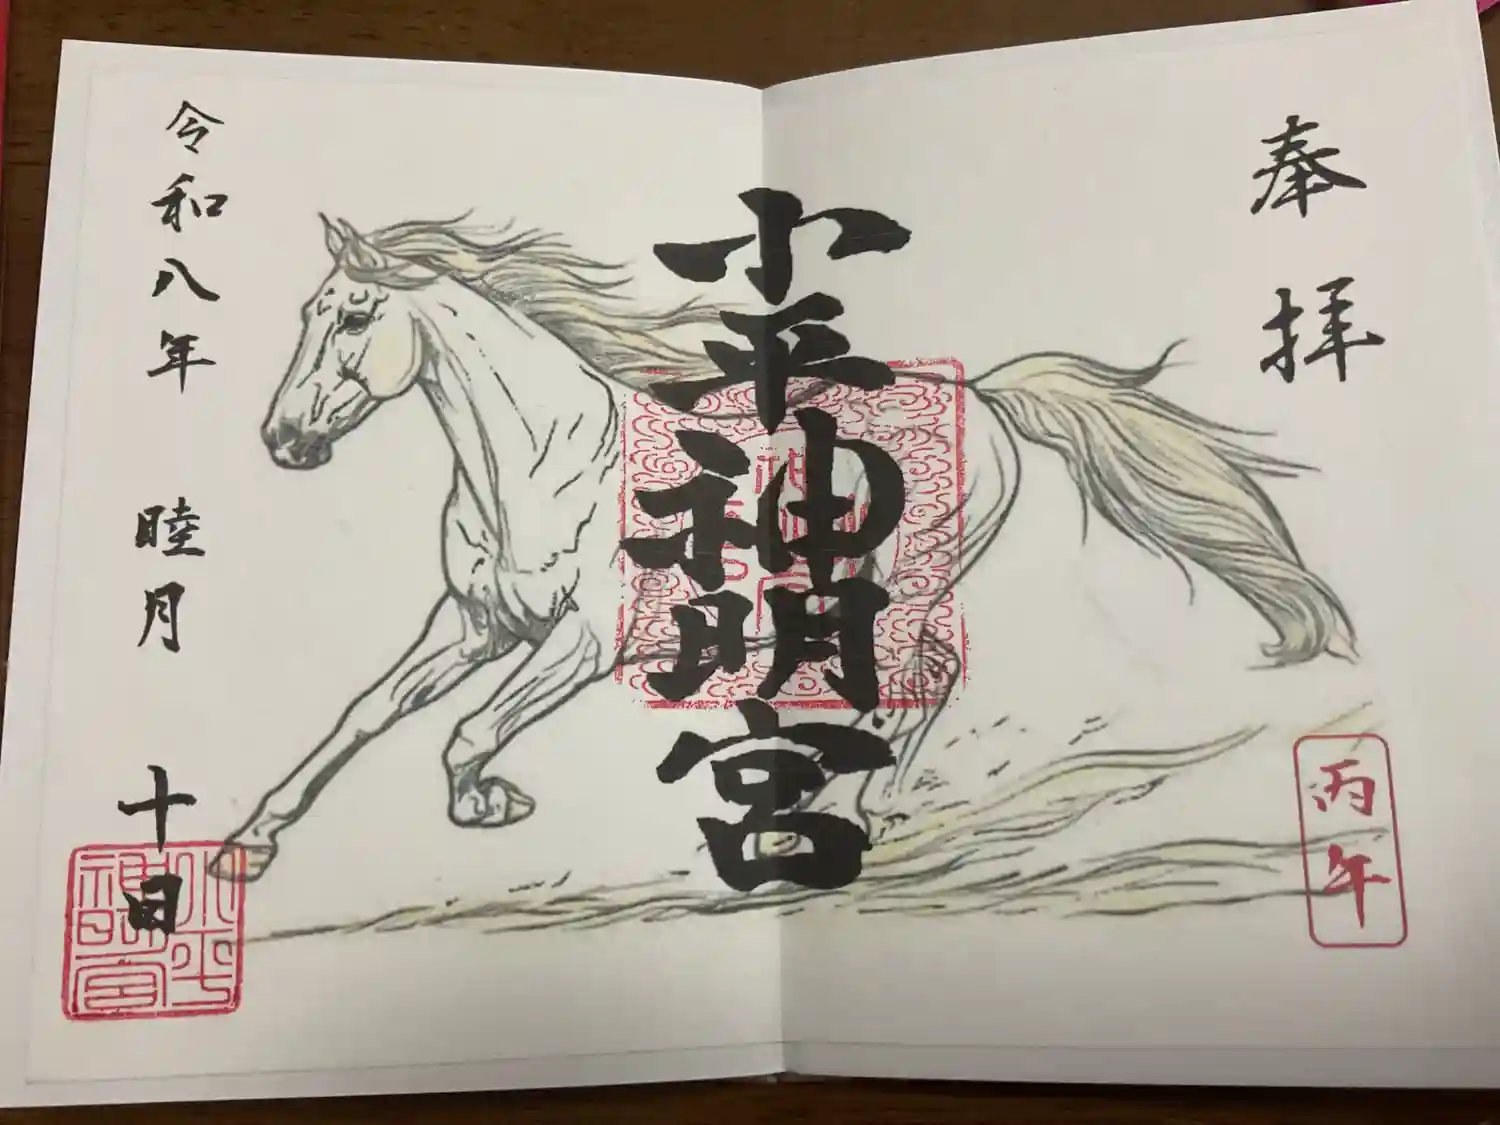 奉拝
丙午
小平神明宮
令和八年 睦月 十日
小平神明宮